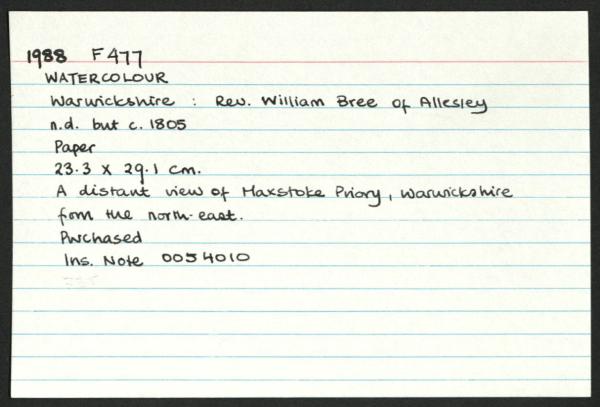 1988 F477
WATERCOLOUR
Warwickshire : Rev. William Bree of Allesley
n.d. but c. 1805
Paper
23.3 x 29.1 cm.
A distant view of Maxstoke Priory, Warwickshire
from the north-east.
Purchased
Ins. Note 0054010